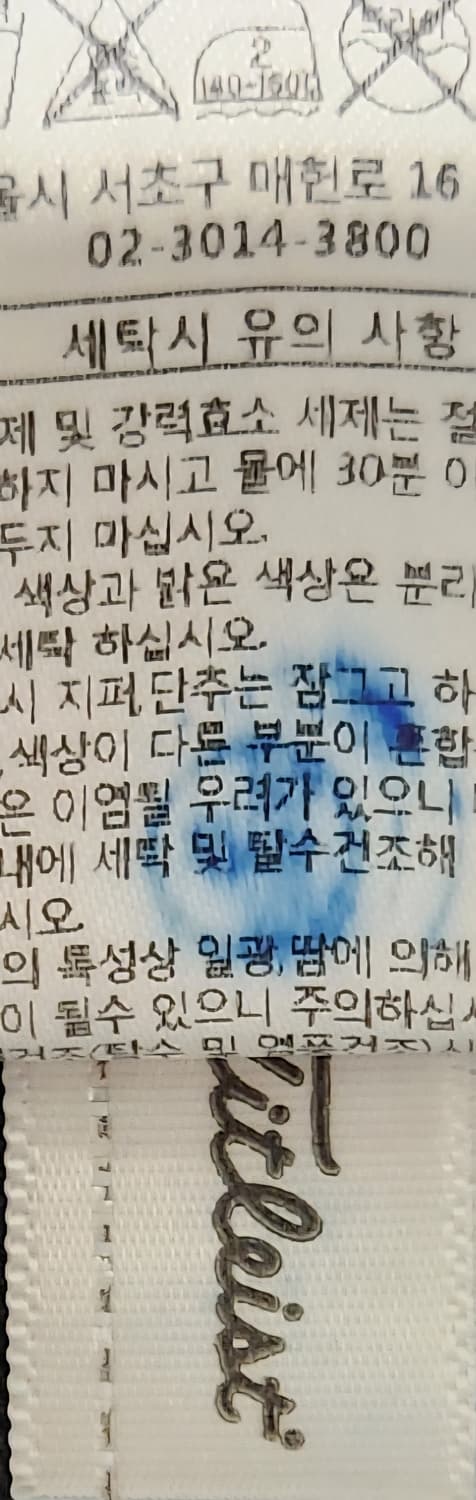 2
140-160℃
울시 서초구 매헌로 16
02-3014-3800
세탁시 유의 사항
제 및 강력효소 세제는 절
하지 마시고 물에 30분 이
두지 마십시오.
색상과 밝은 색상은 분리
세탁 하십시오.
시 지퍼,단추는 잠그고 하
,색상이 다른 부분이 혼합
은 이염될 우려가 있으니
내에 세탁 및 탈수건조해
시오.
의 특성상 일광,땀에 의해
이 될수 있으니 주의하십시
건조(탈수 및 열풍건조)시
Titleist